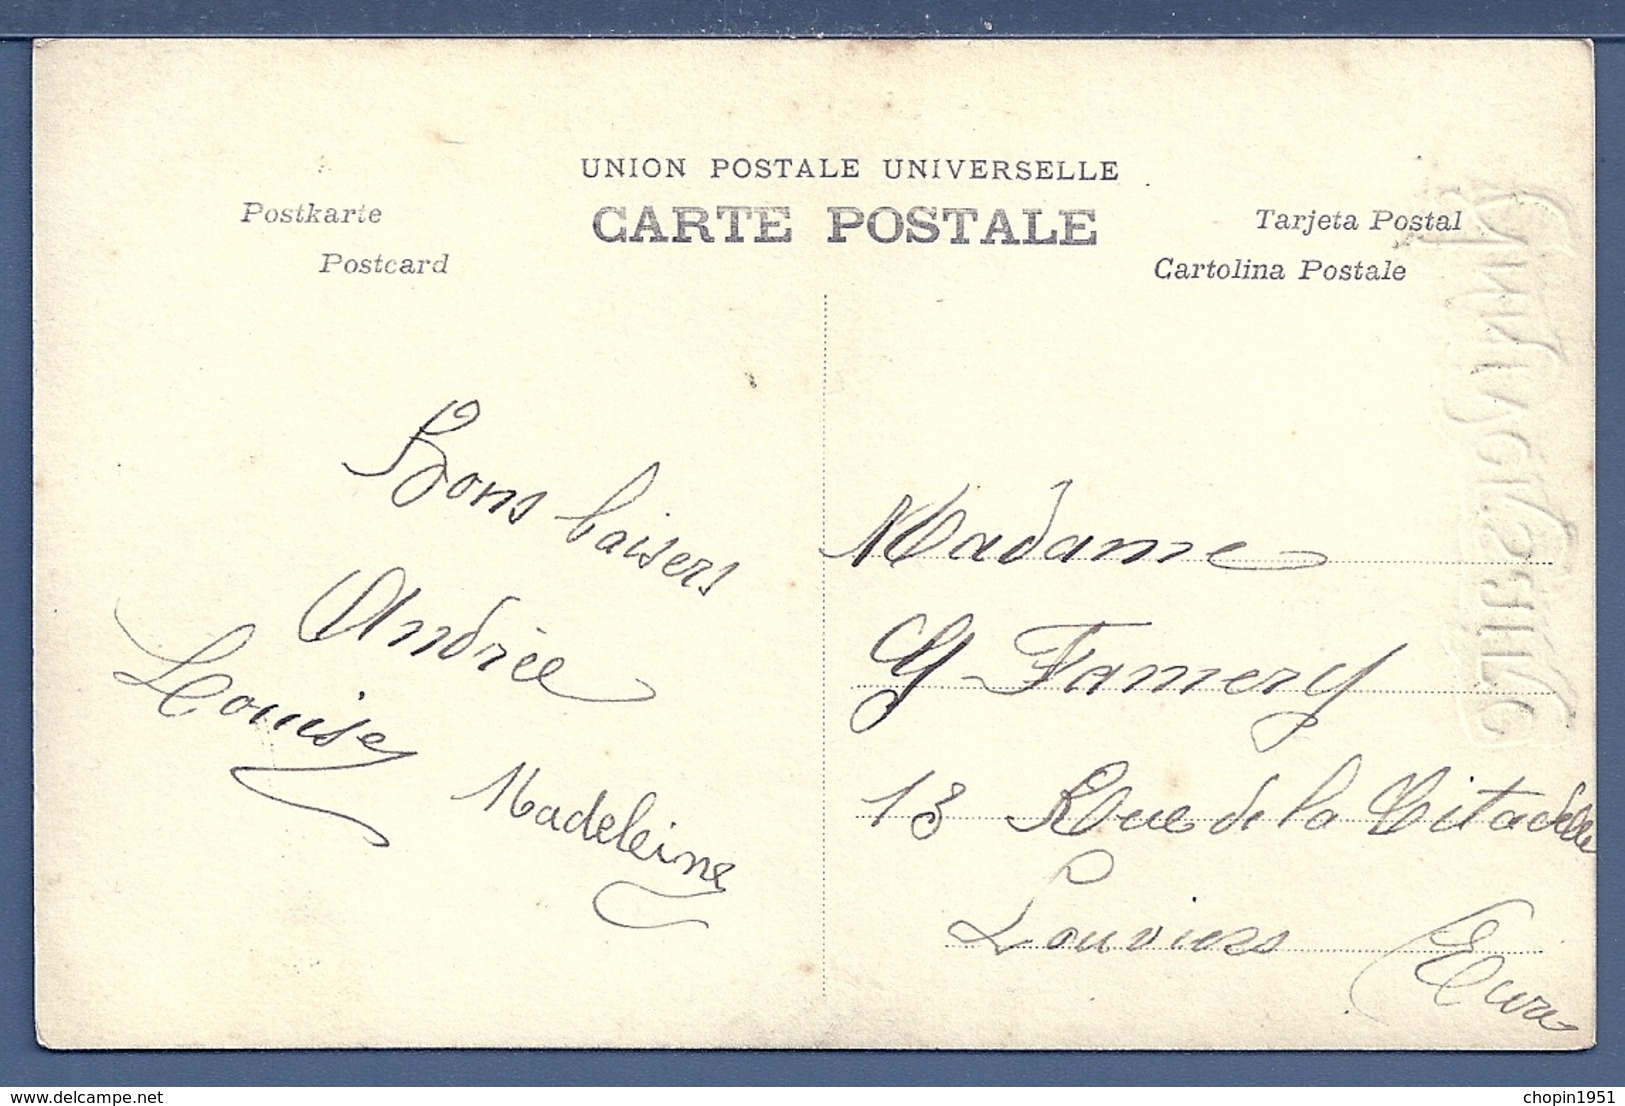 UNION POSTALE UNIVERSELLE
CARTE POSTALE
Postkarte
Postcard
Tarjeta Postal
Cartolina Postale
Bons baisers
Andrée
Louise
Madeleine
Madame
G Famery
13 Rue de la Citadelle
Louviers
(Eure
delcampe.net
chopin1951